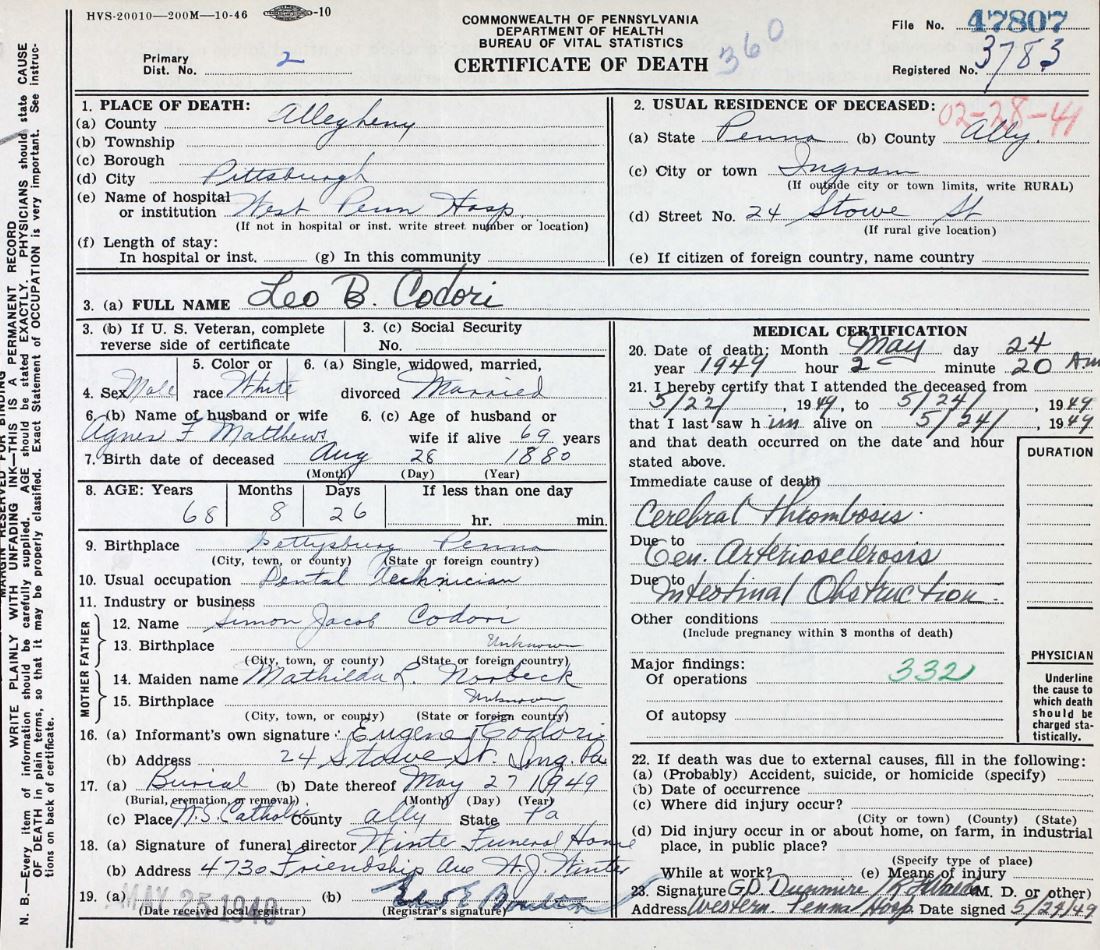 HVS-20010—200M—10-46 -10
COMMONWEALTH OF PENNSYLVANIA
DEPARTMENT OF HEALTH
BUREAU OF VITAL STATISTICS
CERTIFICATE OF DEATH
360
File No. 47807
Registered No. 3783
Primary
Dist. No. 2
1. PLACE OF DEATH:
(a) County Allegheny
(b) Township
(c) Borough
(d) City Pittsburgh
(e) Name of hospital
or institution West Penn Hosp.
(If not in hospital or inst. write street number or location)
(f) Length of stay:
In hospital or inst. (g) In this community
2. USUAL RESIDENCE OF DECEASED:
02-28-41
(a) State Penna (b) County Ally.
(c) City or town Ingram
(If outside city or town limits, write RURAL)
(d) Street No. 24 Stowe St
(If rural give location)
(e) If citizen of foreign country, name country
3. (a) FULL NAME Leo B. Codori
3. (b) If U. S. Veteran, complete
reverse side of certificate
3. (c) Social Security
No.
4. Sex Male
5. Color or
race White
6. (a) Single, widowed, married,
divorced Married
6. (b) Name of husband or wife
Agnes F Matthews
6. (c) Age of husband or
wife if alive 69 years
7. Birth date of deceased Aug 28 1880
(Month) (Day) (Year)
8. AGE: Years Months Days If less than one day
68 8 26 hr. min.
9. Birthplace Gettysburg Penna
(City, town, or county) (State or foreign country)
10. Usual occupation Dental Technician
11. Industry or business
FATHER
12. Name Simon Jacob Codori
13. Birthplace Unknown
(City, town, or county) (State or foreign country)
MOTHER
14. Maiden name Mathilda L. Norbeck
15. Birthplace Unknown
(City, town, or county) (State or foreign country)
16. (a) Informant's own signature Eugene Codori
(b) Address 24 Stowe St. Ing. Pa
17. (a) Burial (b) Date thereof May 27 1949
(Burial, cremation, or removal) (Month) (Day) (Year)
(c) Place N.S. Catholic County Ally State Pa
18. (a) Signature of funeral director Winter Funeral Home
(b) Address 4730 Friendship Ave H.J. Winter
19. (a) MAY 25 1949 (b)
(Date received local registrar) (Registrar's signature)
MEDICAL CERTIFICATION
20. Date of death: Month May day 24
year 1949 hour 2 minute 20 A.m
21. I hereby certify that I attended the deceased from
5/22/, 1949, to 5/24/, 1949
that I last saw h im alive on 5/24/, 1949
and that death occurred on the date and hour
stated above.
DURATION
Immediate cause of death
Cerebral Thrombosis.
Due to
Gen. Arteriosclerosis
Due to
Intestinal Obstruction.
Other conditions
(Include pregnancy within 3 months of death)
Major findings:
Of operations 332
Of autopsy
PHYSICIAN
Underline
the cause to
which death
should be
charged sta-
tistically.
22. If death was due to external causes, fill in the following:
(a) (Probably) Accident, suicide, or homicide (specify)
(b) Date of occurrence
(c) Where did injury occur?
(City or town) (County) (State)
(d) Did injury occur in or about home, on farm, in industrial
place, in public place?
(Specify type of place)
While at work? (e) Means of injury
23. Signature G.D. Dunmire (M. D. or other)
Address Western Penna Hosp Date signed 5/24/49
MARGIN RESERVED FOR BINDING
WRITE PLAINLY WITH UNFADING INK—THIS IS A PERMANENT RECORD
N. B.—Every item of information should be carefully supplied. AGE should be stated EXACTLY. PHYSICIANS should state CAUSE
OF DEATH in plain terms, so that it may be properly classified. Exact Statement of OCCUPATION is very important. See instruc-
tions on back of certificate.